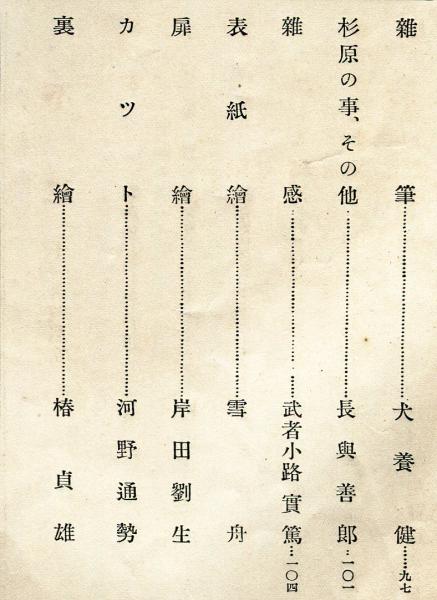 雜筆……犬養健……九七
杉原の事、その他……長與善郎…一〇一
雜感……武者小路實篤…一〇四
表紙繪……雪舟
扉繪……岸田劉生
カツト……河野通勢
裏繪……椿貞雄